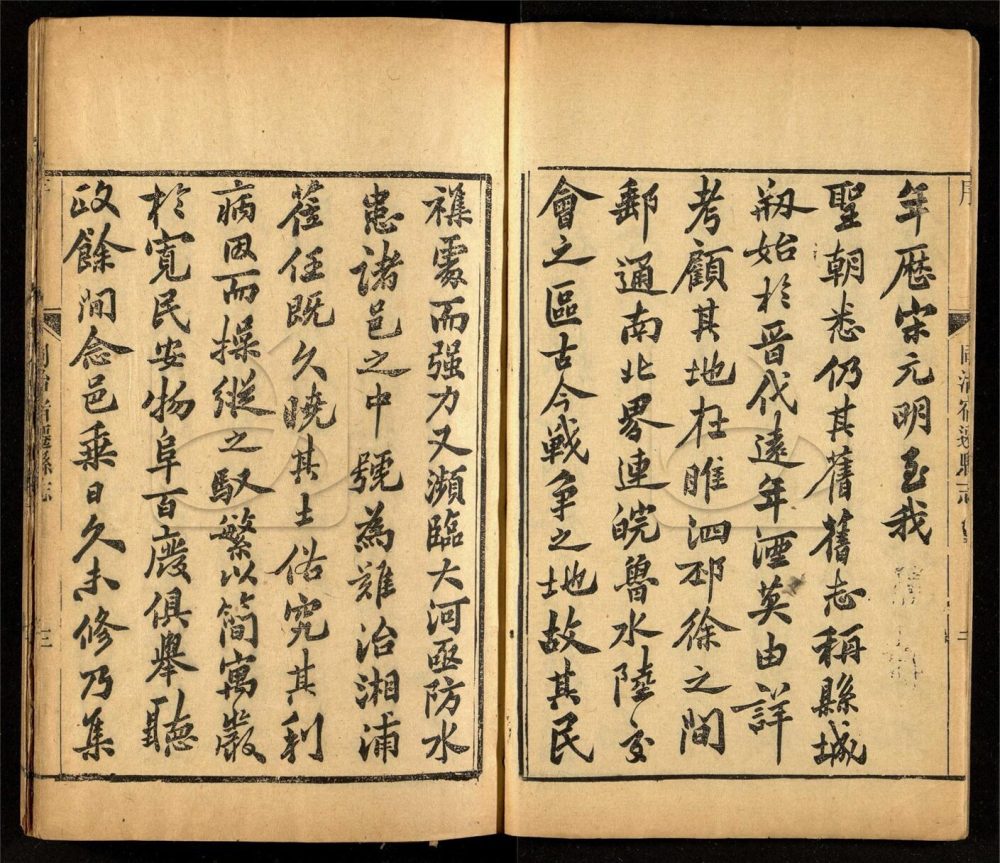 年歷宋元明至我
聖朝悉仍其舊舊志稱縣城
剏始於晋代遠年湮莫由詳
考顧其地在睢泗邳徐之間
郵通南北界連皖魯水陸交
會之區古今戰爭之地故其民
襍處而强力又瀕臨大河亟防水
患諸邑之中號為難治湘浦
莅任既久曉其土俗究其利
病因而操縱之馭繁以簡寓嚴
於寬民安物阜百廢俱舉聽
政餘閒念邑乘日久未修乃集
序
同治宿遷縣志
同治宿遷縣志
三